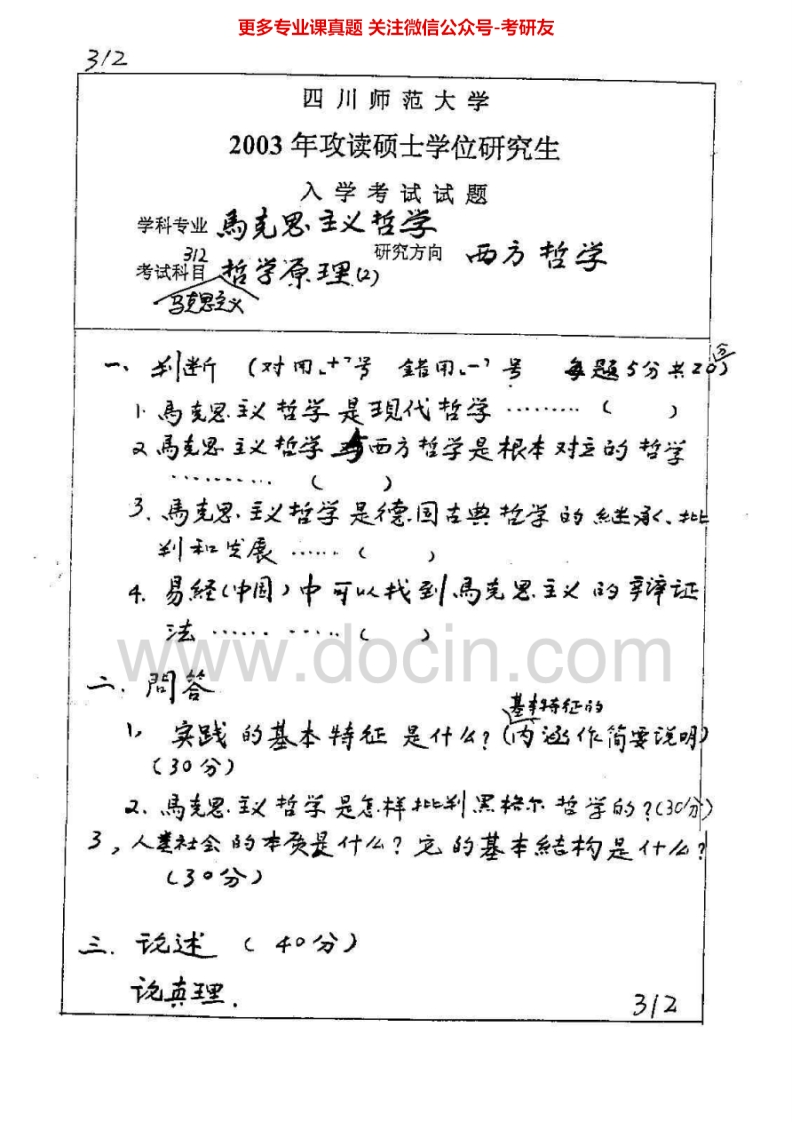 更多专业课真题 关注微信公众号-考研友
312
四川师范大学
2003 年攻读硕士学位研究生
入学考试试题
学科专业 馬克思主义哲学
研究方向 西方哲学
312
考试科目 哲学原理(2)
马克思主义
一、判断 (对用“+”号 错用“-”号 每题5分共20分)
1. 馬克思主义哲学是现代哲学 ……… ( )
2. 馬克思主义哲学与西方哲学是根本对立的哲学
……… ( )
3. 馬克思主义哲学是德国古典哲学的继承、批
判和发展 …… ( )
4. 易経(中国)中可以找到馬克思主义的辩证
法 …… …… ( )
www.docin.com
二、問答
基本特征的
1、实践的基本特征是什么？(内涵作简要说明)
(30分)
2、馬克思主义哲学是怎样批判黑格尔哲学的？(30分)
3，人类社会的本质是什么？它的基本结构是什么？
(30分)
三、论述 (40分)
论真理.
312